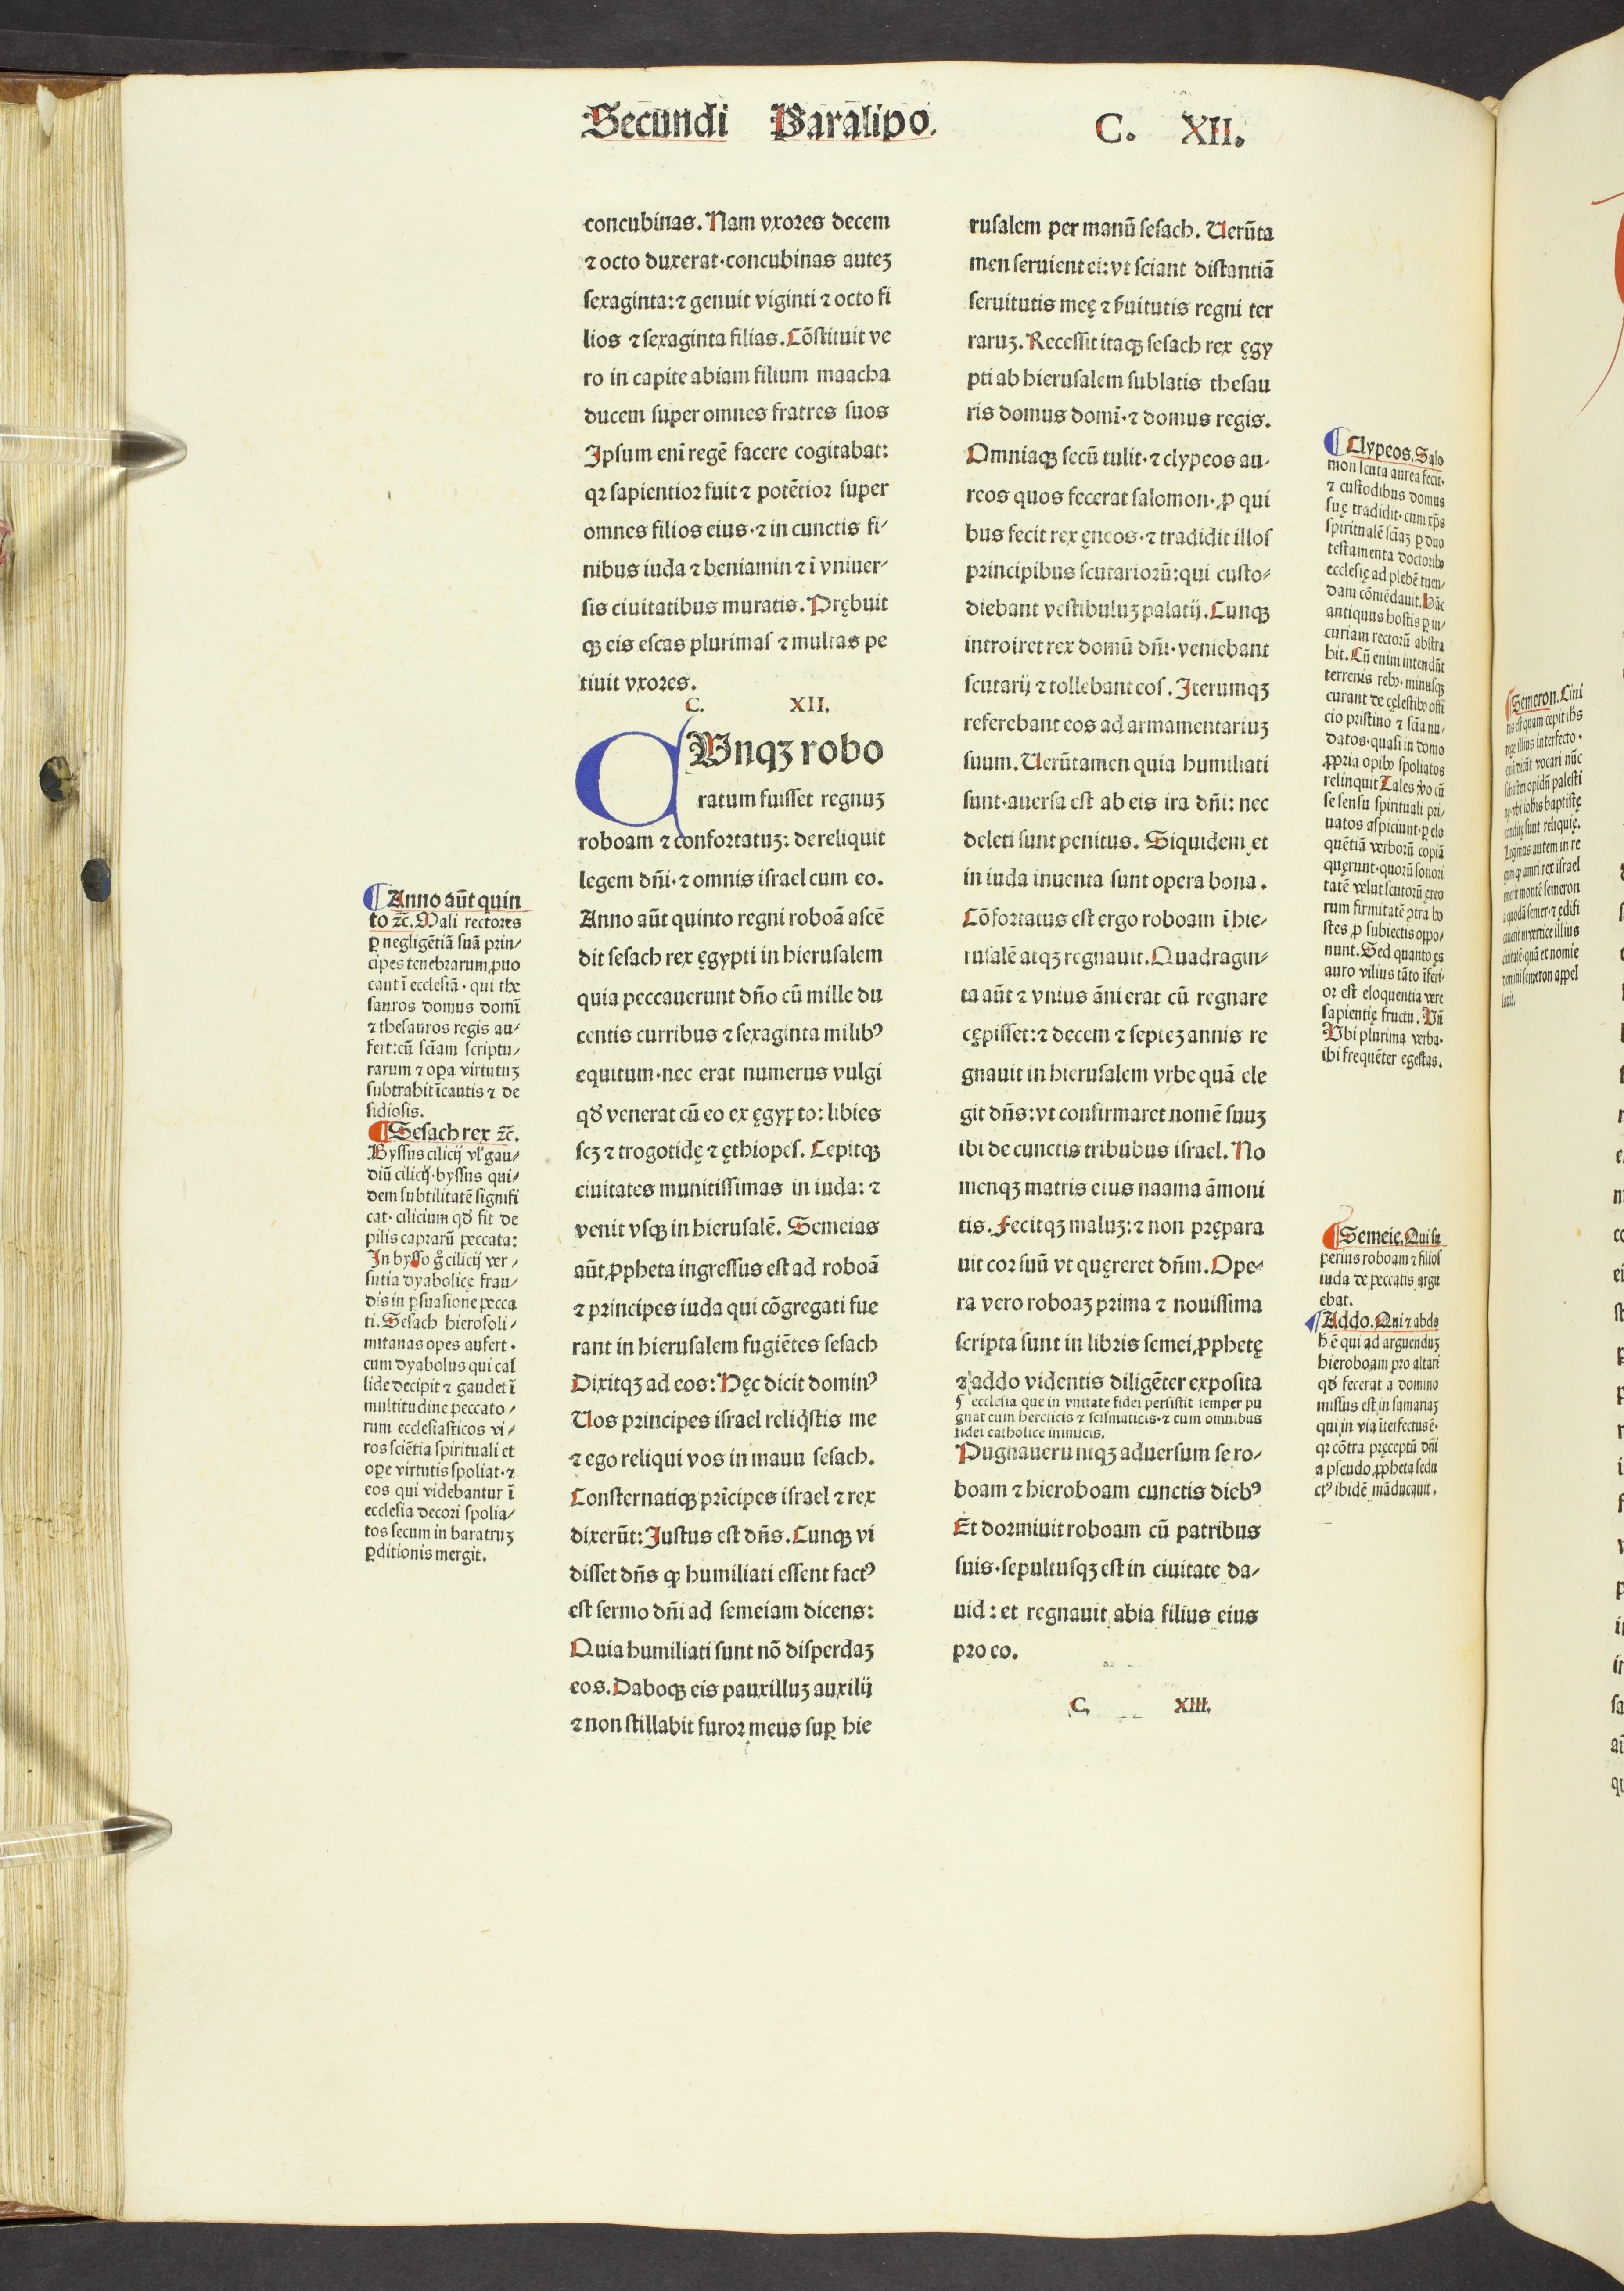 Secundi Paralipo. C. XII.
concubinas. Nam vxores decem
⁊ octo duxerat·concubinas auteꝫ
ſexaginta:⁊ genuit viginti ⁊ octo fi
lios ⁊ ſexaginta filias. Cõſtituit ve
ro in capite abiam filium maacha
ducem ſuper omnes fratres ſuos
Ipſum eni regē facere cogitabat:
qꝛ ſapientior fuit ⁊ potētior ſuper
omnes filios eius·⁊ in cunctis fi⸗
nibus iuda ⁊ beniamin ⁊ ī vniuer⸗
ſis ciuitatibus muratis. Prębuit
qꝫ eis eſcas plurimaſ ⁊ multas pe
tiuit vxores.
C. XII.
CVnqꝫ robo
ratum fuiſſet regnuꝫ
roboam ⁊ confortatuꝫ: dereliquit
legem dñi·⁊ omnis iſrael cum eo.
Anno aūt quinto regni roboā aſcē
dit ſeſach rex ęgypti in hieruſalem
quia peccauerunt dño cū mille du
centis curribus ⁊ ſexaginta milibꝰ
equitum·nec erat numerus vulgi
qđ venerat cū eo ex ęgypto: libies
ſcꝫ ⁊ trogotidę ⁊ ęthiopeſ. Cepitqꝫ
ciuitates munitiſſimas in iuda: ⁊
venit vſqꝫ in hieruſalē. Semeias
aūt ꝓpheta ingreſſus eſt ad roboā
⁊ principes iuda qui cõgregati fue
rant in hieruſalem fugiētes ſeſach
Dixitqꝫ ad eos: Hęc dicit dominꝰ
Uos principes iſrael reliq̃ſtis me
⁊ ego reliqui vos in mauu ſeſach.
Conſternatiqꝫ prīcipes iſrael ⁊ rex
dixerūt: Juſtus eſt dñs. Cunqꝫ vi
diſſet dñs ꝙ humiliati eſſent factꝰ
eſt ſermo dñi ad ſemeiam dicens:
Quia humiliati ſunt nō diſperdaꝫ
eos. Daboqꝫ eis pauxilluꝫ auxilij
⁊ non ſtillabit furor meus ſuꝑ hie
ruſalem per manū ſeſach. Uerūta
men ſeruient ei: vt ſciant diſtantiā
ſeruitutis meę ⁊ ẜuitutis regni ter
raruꝫ. Receſſit itaqꝫ ſeſach rex ęgy
pti ab hieruſalem ſublatis theſau
ris domus domī·⁊ domus regis.
Omniaqꝫ ſecū tulit·⁊ clypeos au⸗
reos quos fecerat ſalomon·ꝓ qui
bus fecit rex ęneos·⁊ tradidit illoſ
principibus ſcutariorū: qui cuſto⸗
diebant veſtibuluꝫ palatij. Cunqꝫ
introiret rex domū dñi·veniebant
ſcutarij ⁊ tollebant eoſ. Iterumqꝫ
referebant eos ad armamentariuꝫ
ſuum. Uerūtamen quia humiliati
ſunt·auerſa eſt ab eis ira dñi: nec
deleti ſunt penitus. Siquidem et
in iuda inuenta ſunt opera bona.
Cõfortatus eſt ergo roboam ī hie⸗
ruſalē atqꝫ regnauit. Quadragin⸗
ta aūt ⁊ vnius āni erat cū regnare
cępiſſet:⁊ decem ⁊ ſepteꝫ annis re
gnauit in hieruſalem vrbe quā ele
git dñs: vt confirmaret nomē ſuuꝫ
ibi de cunctis tribubus iſrael. No
menqꝫ matris eius naama āmoni
tis. Fecitqꝫ maluꝫ:⁊ non prępara
uit cor ſuū vt quęreret dñm. Ope⸗
ra vero roboaꝫ prima ⁊ nouiſſima
ſcripta ſunt in libris ſemei ꝓphetę
⁊ addo videntis diligēter expoſita
¶ eccleſia que in vnitate fidei perſiſtit ſemper pu
gnat cum hereticis ⁊ ſciſmaticis·⁊ cum omnibus
fidei catholice inimicis.
Pugnaueruntqꝫ aduerſum ſe ro⸗
boam ⁊ hieroboam cunctis diebꝰ
Et dormiuit roboam cū patribus
ſuis·ſepultuſqꝫ eſt in ciuitate da⸗
uid: et regnauit abia filius eius
pro eo.
C. XIII.
¶ Anno aūt quin
to ⁊c̄. Mali rectores
ꝑ negligētiā ſuā prin⸗
cipes tenebrarum ꝓuo
cant ī eccleſiā·qui the
ſauros domus domī
⁊ theſauros regis au⸗
fert: cū ſciam ſcriptu⸗
rarum ⁊ oꝑa virtutuꝫ
ſubtrahit īcautis ⁊ de
ſidioſis.
¶ Seſach rex ⁊c̄.
Byſſus cilicij vl' gau⸗
diū cilicij·byſſus qui⸗
dem ſubtilitatē ſignifi
cat·cilicium qđ fit de
pilis caprarū peccata:
In byſſo g̊ cilicij ver⸗
ſutia dyabolicę frau⸗
dis in ꝑſuaſione pecca
ti. Seſach hieroſoli⸗
mitanas opes aufert·
cum dyabolus qui cal
lide decipit ⁊ gaudet ī
multitudine peccato⸗
rum eccleſiaſticos vi⸗
ros ſciētia ſpirituali et
ope virtutis ſpoliat·⁊
eos qui videbantur ī
eccleſia decori ſpolia⸗
tos ſecum in baratruꝫ
ꝑditionis mergit.
¶ Clypeos. Salo
mon ſcuta aurea fecit·
⁊ cuſtodibus domus
ſuę tradidit·cum xp̄s
ſpiritualē ſciaꝫ ꝑ duo
teſtamenta doctoribꝰ
eccleſię ad plebē tuen⸗
dam cōmēdauit. Hāc
antiquus hoſtis ꝑ in⸗
curiam rectorū abſtra
hit. Cū enim intendūt
terrenis rebꝰ·minuſqꝫ
curant de cęleſtibꝰ offi
cio priſtino ⁊ ſcia nu⸗
datos·quaſi in domo
ꝓpria opibꝰ ſpoliatos
relinquit Tales ꝟo cū
ſe ſenſu ſpirituali pri⸗
uatos aſpiciunt·ꝑ elo
quētiā verborū copiā
quęrunt·quorū ſonori
tatē velut ſcutorū ęreo
rum firmitatē ↄtra ho
ſtes ꝓ ſubiectis oppo⸗
nunt. Sed quanto ęs
auro vilius tāto īferi⸗
or eſt eloquentia vere
ſapientię fructu. Vn̄
Vbi plurima verba·
ibi frequēter egeſtas.
¶ Semeię. Qui ſu
perius roboam ⁊ filioſ
iuda de peccatis argu
ebat.
¶ Addo. Qui ⁊ abdo
h̄ ē qui ad arguenduꝫ
hieroboam pro altari
qđ fecerat a domino
miſſus eſt in ſamariaꝫ
qui in via īterfectus ē·
qꝛ cōtra pręceptū dñi
a pſeudo ꝓpheta ſedu
ctꝰ ibidē māducauit.
¶ Semeron. Ciui